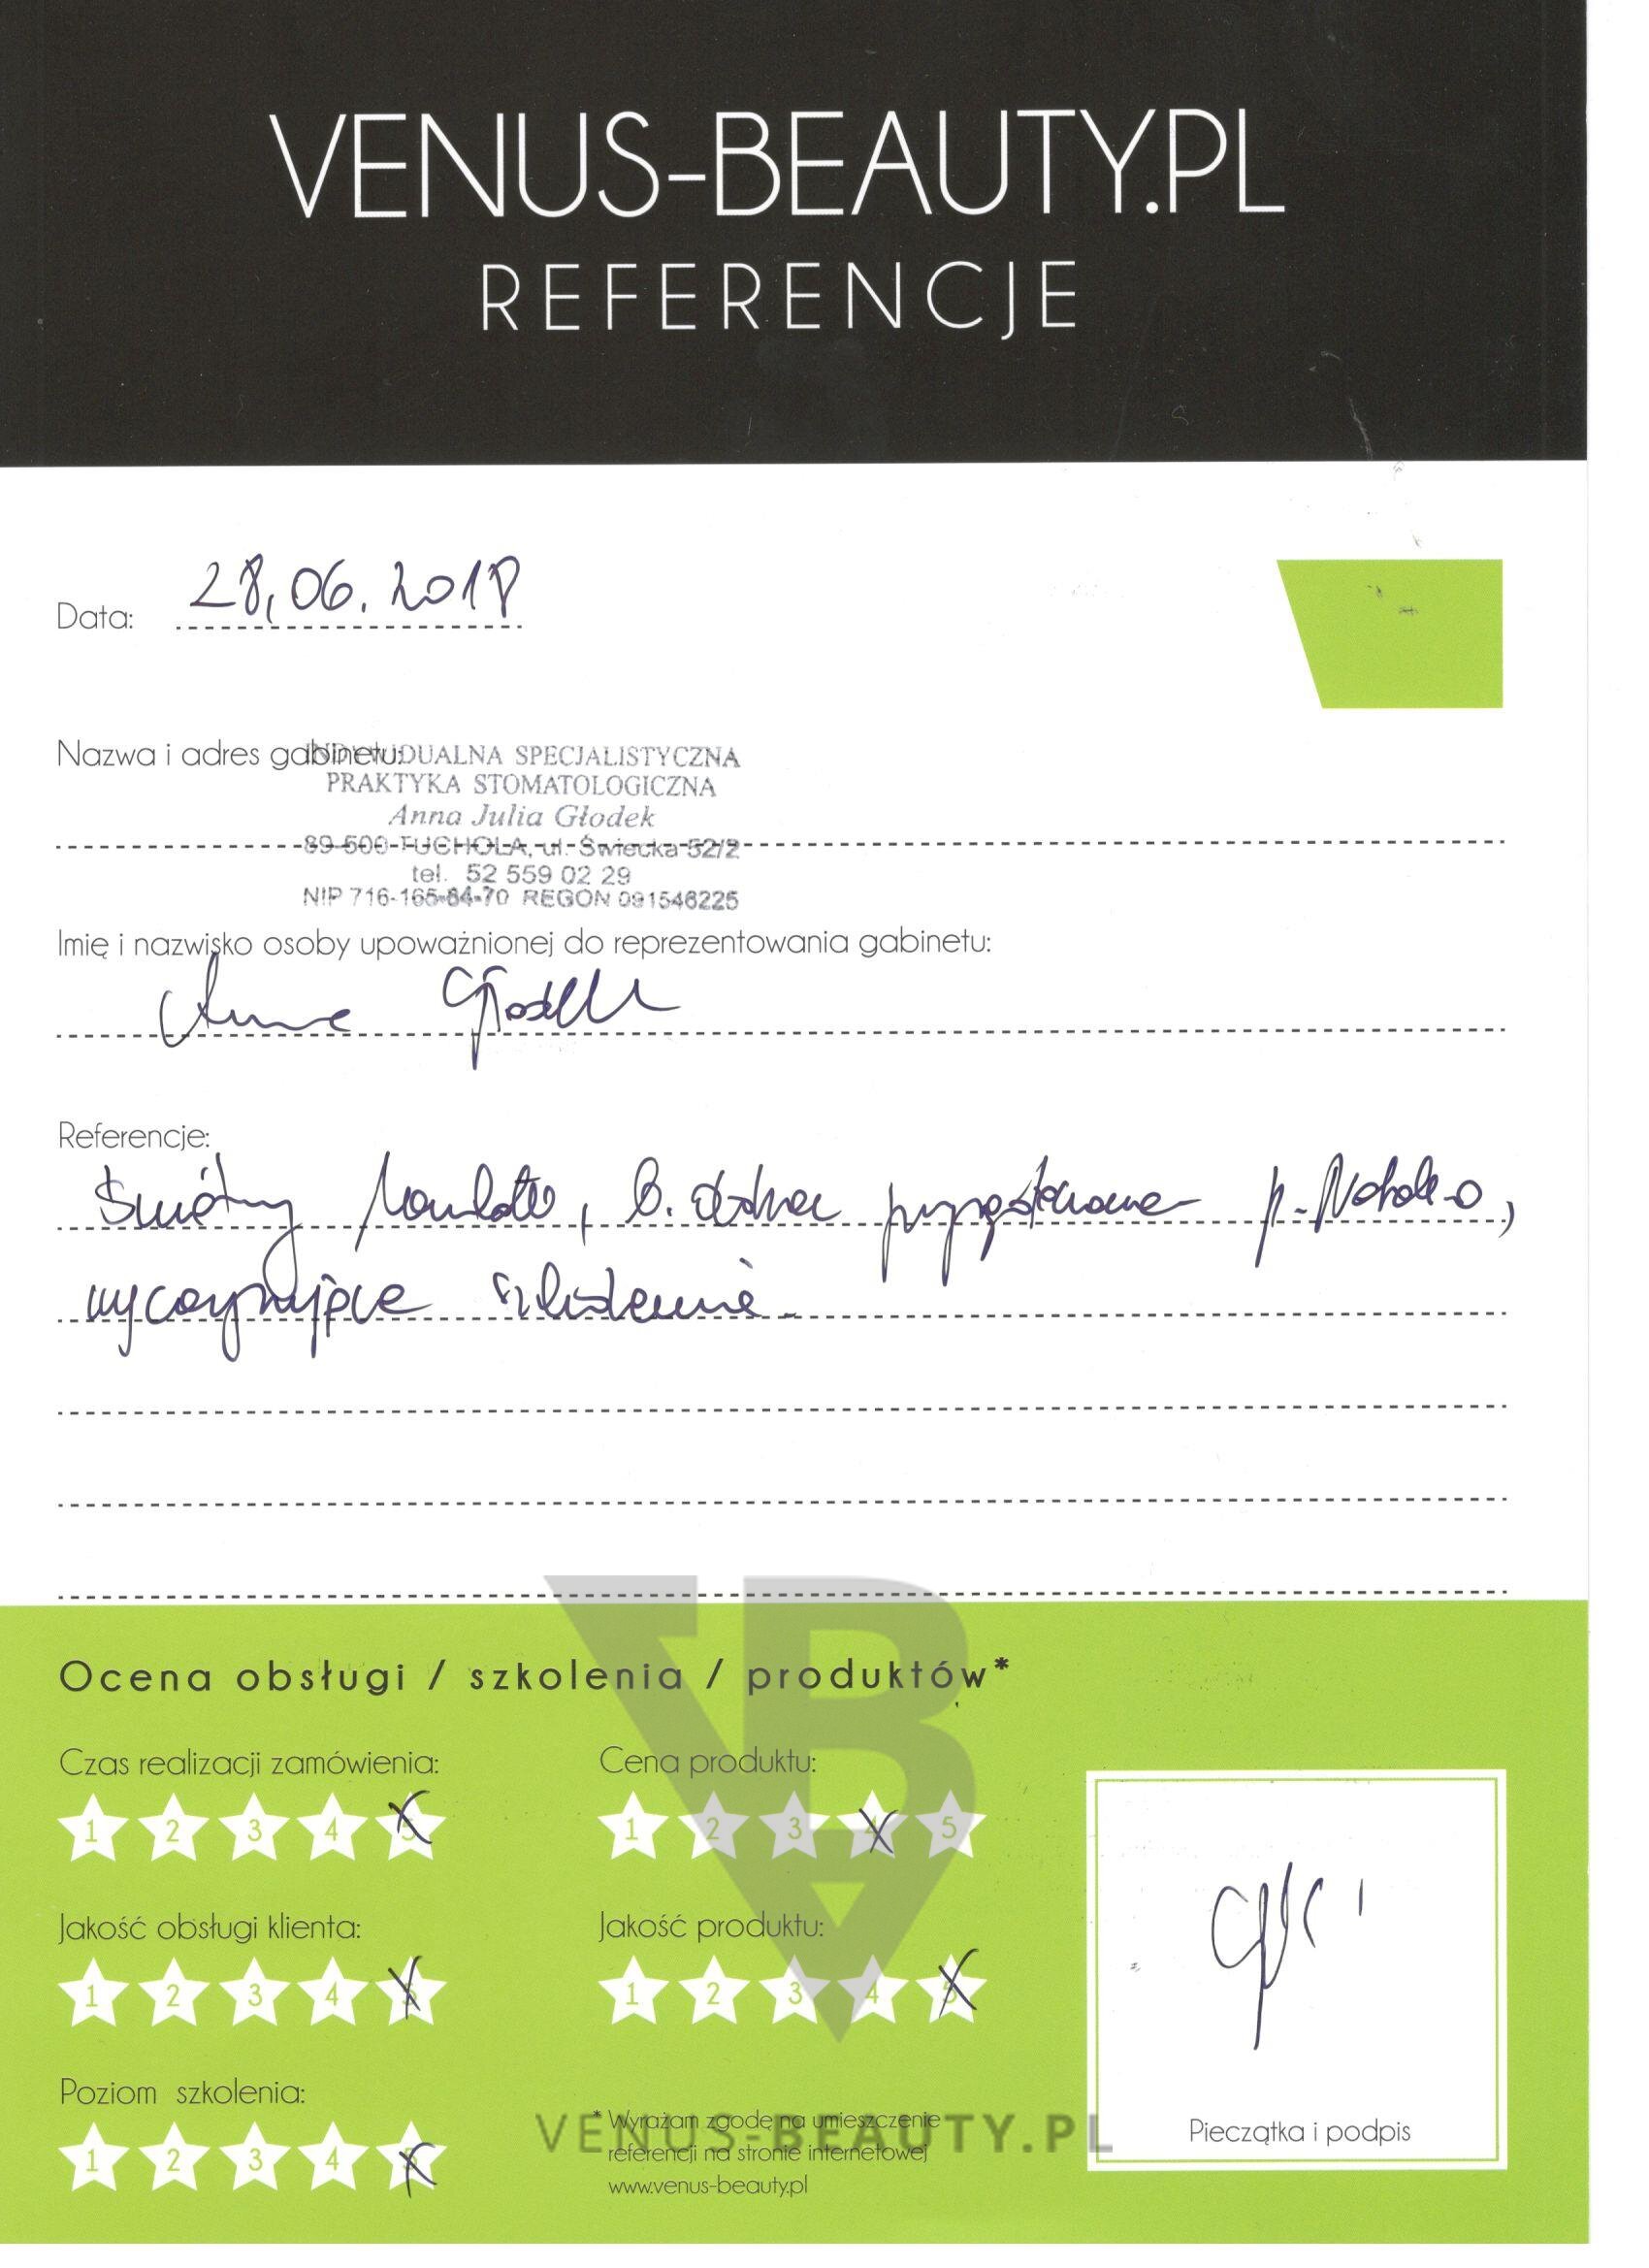 VENUS-BEAUTY.PL
REFERENCJE
Data: 28,06.2018
Nazwa i adres gabinetu:
INDYWIDUALNA SPECJALISTYCZNA
PRAKTYKA STOMATOLOGICZNA
Anna Julia Głodek
89-500 TUCHOLA, ul. Świecka 52/2
tel. 52 559 02 29
NIP 716-165-64-70 REGON 091546225
Imię i nazwisko osoby upoważnionej do reprezentowania gabinetu:
Anna Głodek
Referencje:
Świetny kontakt, b. dobrze przygotowana p. Natalia,
wyczerpujące szkolenie.
Ocena obsługi / szkolenia / produktów*
Czas realizacji zamówienia: Cena produktu:
1 2 3 4 5 1 2 3 4 5
Jakość obsługi klienta: Jakość produktu:
1 2 3 4 5 1 2 3 4 5
Poziom szkolenia:
1 2 3 4 5
* Wyrażam zgodę na umieszczenie
referencji na stronie internetowej
www.venus-beauty.pl
Pieczątka i podpis
VENUS-BEAUTY.PL